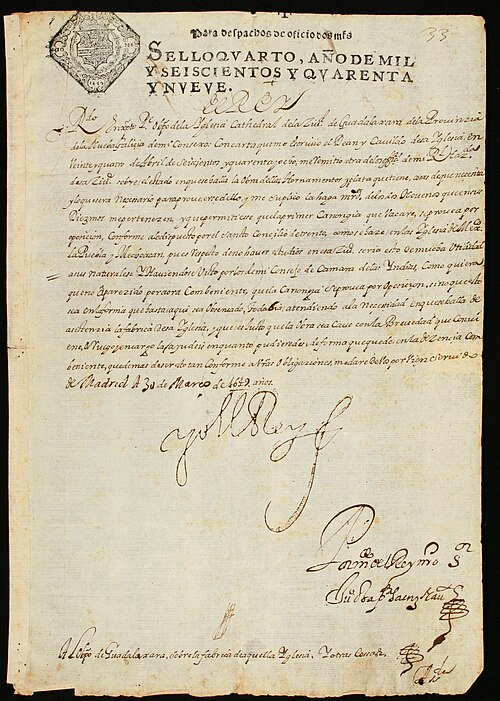 33
Para despachos de oficio dos mrs
SELLO QVARTO, AÑO DE MIL
Y SEISCIENTOS Y QVARENTA
Y NVEVE.
EL REY
Rdo en xpto Pe obpo de la Yglesia Cathedral de la Ziud de Guadalaxara de la Provinzia
de la Nueva Galizia de mi Consexo: Con carta que me escrivio el Dean y Cavildo de esa Yglesia, en
veinte y quatro de Abril de seiscientos y quarenta y ocho, me remite de mi Rl Audiza
de esa Ziud sobre el estado en que se halla la obra della, Hornamentos y plata que tiene,
y lo que sera necesario para proveerse dello, y me suplico la haga mrd de los dos Novenos que en sus
Diezmos me pertenezen, y que permitiese que la primer Canongia que vacare, se provea por
oposicion, Conforme a lo dispuesto por el Santo Concilio de trento, como se haze en las Yglesias de Mexco
la Puebla y Mechoacan, pues respeto de no haver estudios en esa Ziud seria esto de mucha Utilidad
a sus naturales Y Haviendose Visto por los de mi Consejo de Camara de las Yndias, Como quiera
que no a parezido por aora Combeniente, que la Canongia se provea por Oposizion, sino que esto
sea en la forma que hasta aqui se a observado, todabia, atendiendo a la necesidad en que se halla de
asistenzia la fabrica de esa Yglesia, y que la obra se acave con la Brevedad que Convi
ene, os Ruego y encargo la en quanto pudieredes, de forma que quede en la dezenzia Com
beniente, que demas de ser esto tan Conforme a Vras Obligaziones, me dare dello por bien servido
de Madrid A 30 de Março de 1649. años.
yo el Rey
Por mdo del Rey nro sr
Juo Bapta Saenz Navte
Al Obpo de Guadalaxara, sobre la fabrica de aquella Yglesia, Y otras Cossas.